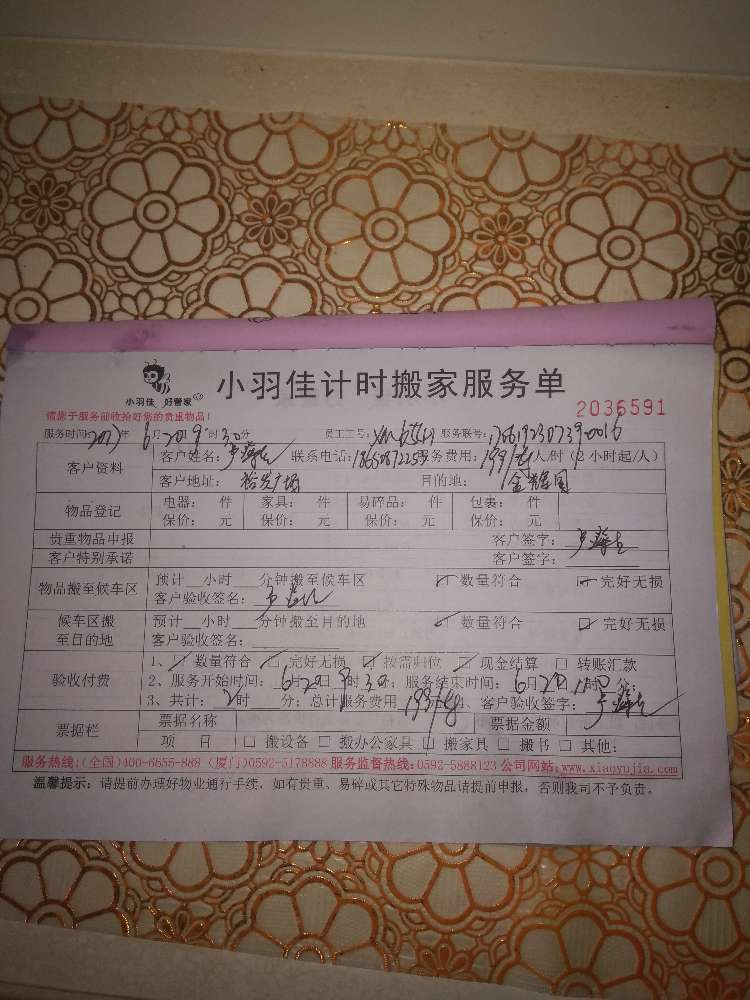 小羽佳 好管家
小羽佳计时搬家服务单
2036591
请您于服务前收拾好您的贵重物品!
服务时间:2017年6月20 9时30分 员工工号: 服务联号:
客户资料 客户姓名: 联系电话: 服务费用:199/ 人/时(2小时起/人)
客户地址: 裕发广场 目的地:
物品登记 电器: 件 家具: 件 易碎品: 件 包裹: 件
保价: 元 保价: 元 保价: 元 保价: 元
贵重物品申报 客户签字:
客户特别承诺 客户签字:
物品搬至候车区 预计__小时__分钟搬至候车区 数量符合 完好无损
客户验收签名:
候车区搬至目的地 预计__小时__分钟搬至目的地 数量符合 完好无损
客户验收签名:
验收付费 1、数量符合 完好无损 按需归位 现金结算 转账汇款
2、服务开始时间: 6月20日9时30分; 服务结束时间: 6月20 分;
3、共计: 2时 分;总计服务费用 199/ 4、客户验收签字:
票据栏 票据名称 票据金额
项 目 搬设备 搬办公家具 搬家具 搬书 其他:
服务热线:(全国)400-6655-889 (厦门)0592-5178888 服务监督热线:0592-5888123 公司网站:www.xiaoyujia.com
温馨提示:请提前办理好物业通行手续,如有贵重、易碎或其它特殊物品请提前申报,否则我司不予负责。